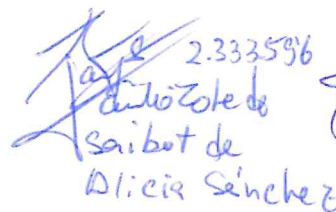 2.333596
Toledo
Saibot de
Alicia Sánchez